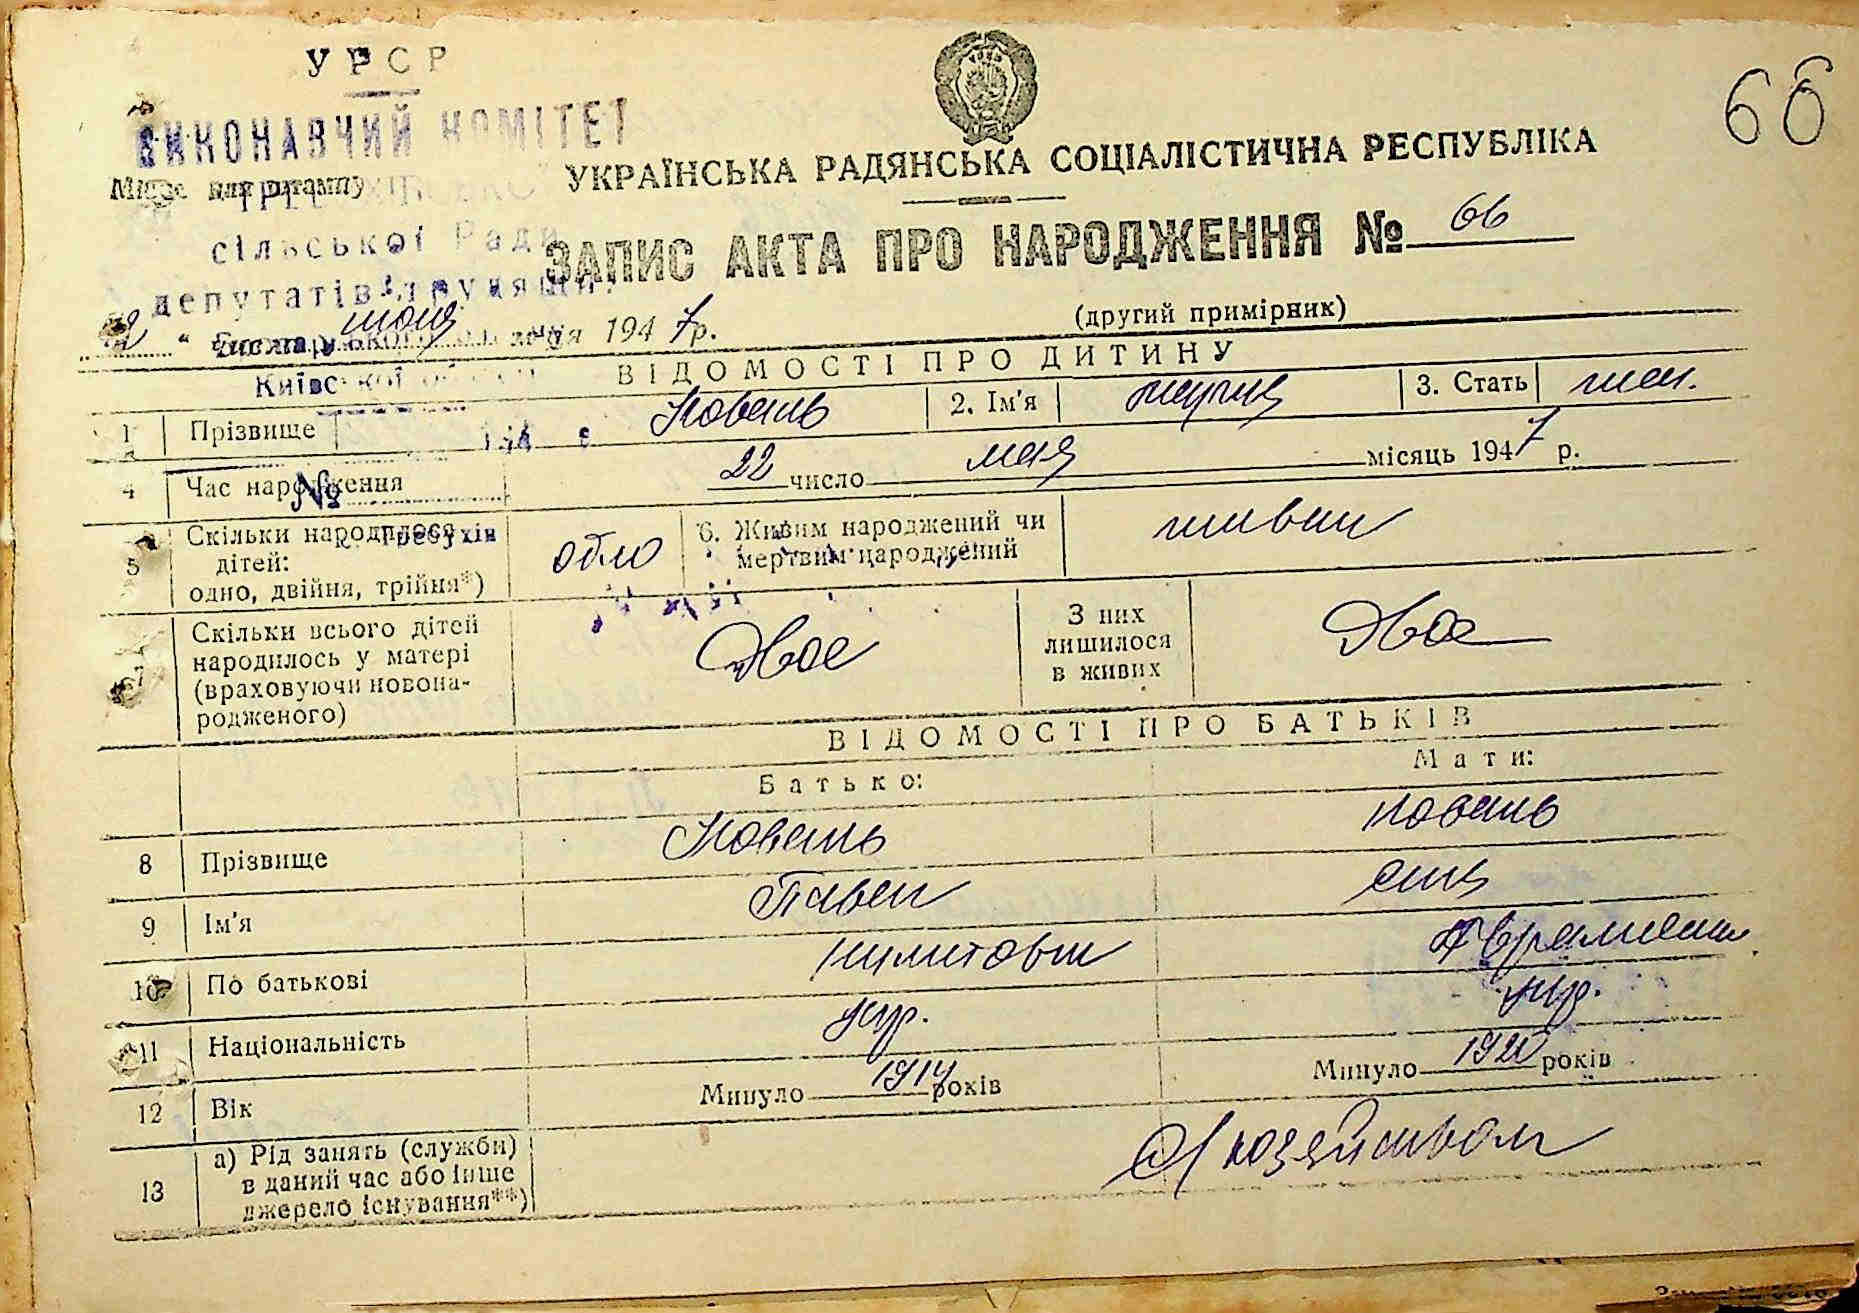 УРСР
66
ВИКОНАВЧИЙ КОМІТЕТ
УКРАЇНСЬКА РАДЯНСЬКА СОЦІАЛІСТИЧНА РЕСПУБЛІКА
Місце для штампу
сільської Ради
ЗАПИС АКТА ПРО НАРОДЖЕННЯ № 66
депутатів трудящих
(другий примірник)
2 " июня 1947 р.
Київської області
ВІДОМОСТІ ПРО ДИТИНУ
1 Прізвище Коваль 2. Ім'я 3. Стать
4 Час народження 22 число мая місяць 1947 р.
№
с. Требухів
5 Скільки народилося дітей: одно, двійня, трійня*) одно 6. Живим народжений чи мертвим народжений живым
Скільки всього дітей народилось у матері (враховуючи новонародженого) Двое З них лишилося в живих Двое
ВІДОМОСТІ ПРО БАТЬКІВ
Батько: Мати:
8 Прізвище Коваль Коваль
9 Ім'я Павел
10 По батькові
11 Національність укр. укр.
12 Вік Минуло 1914 років Минуло 1920 років
13 а) Рід занять (служби) в даний час або інше джерело існування**) хозяйством